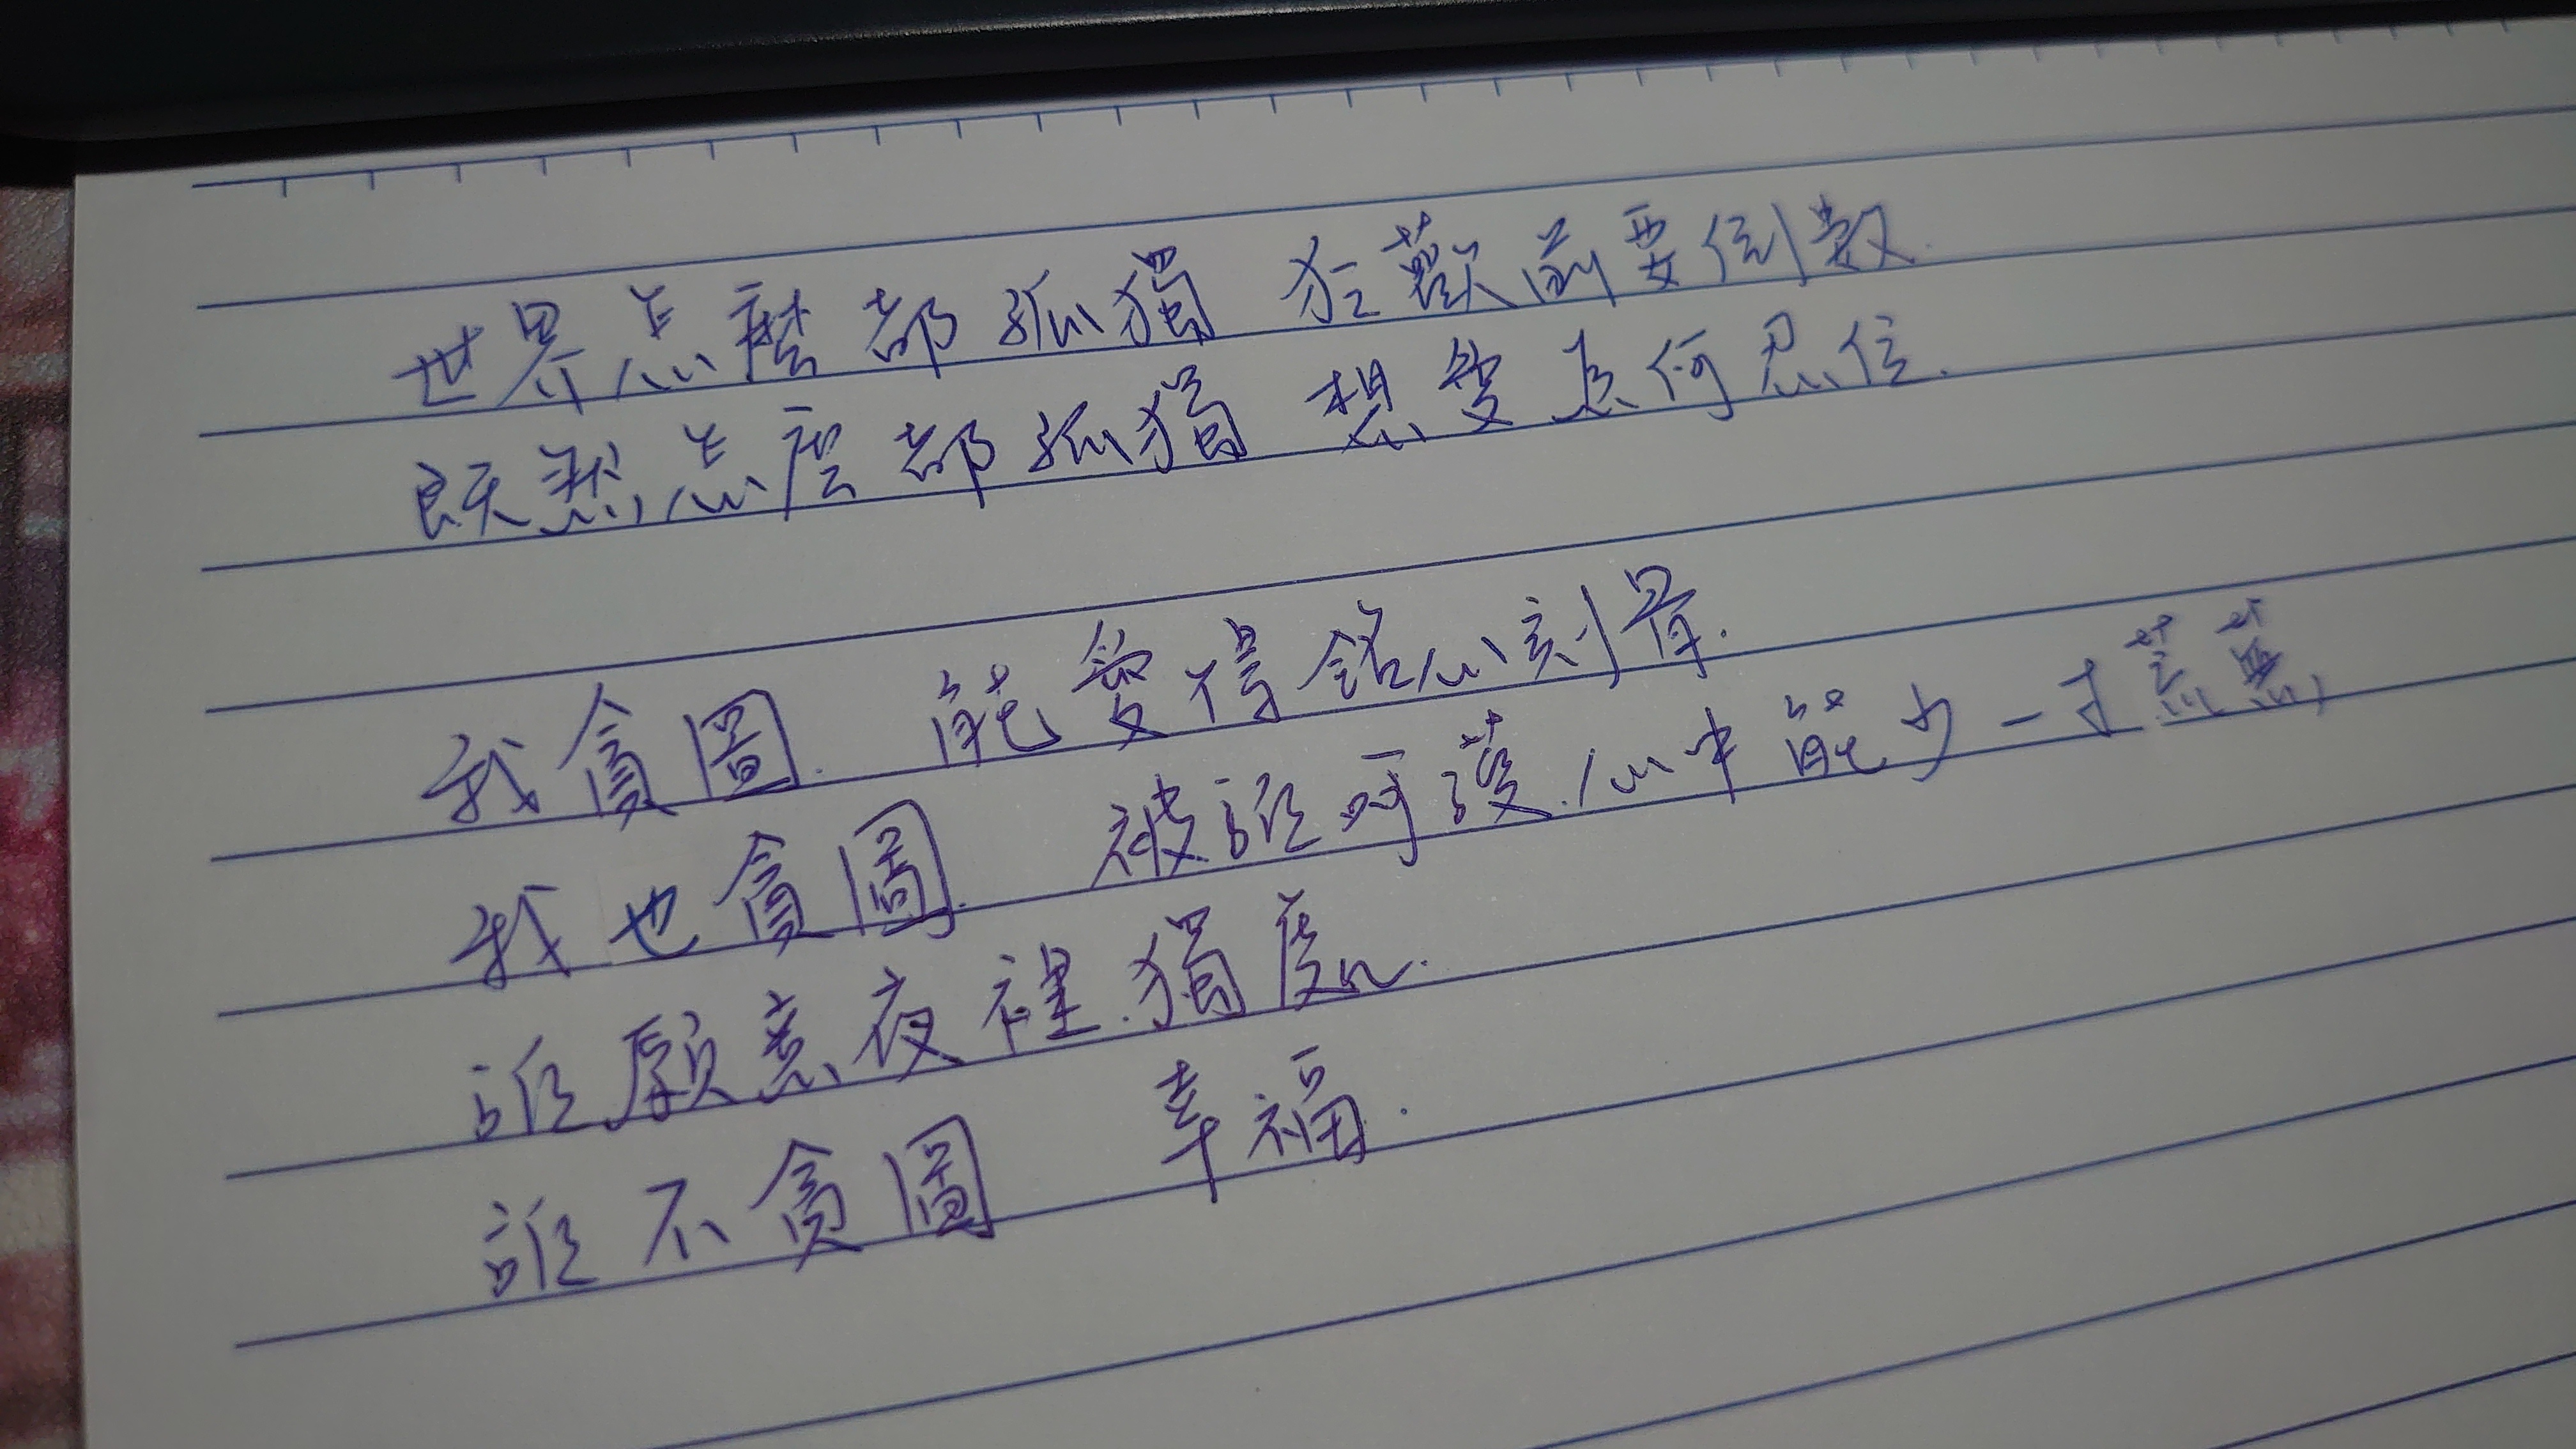 世界怎麼都孤獨 狂歡前要倒數.
既然怎麼都孤獨 想愛為何忍住.
我貪圖. 能愛得銘心刻骨.
我也貪圖. 被誰呵護.心中能少一寸荒蕪
誰願意夜裡.獨處.
誰不貪圖 幸福.